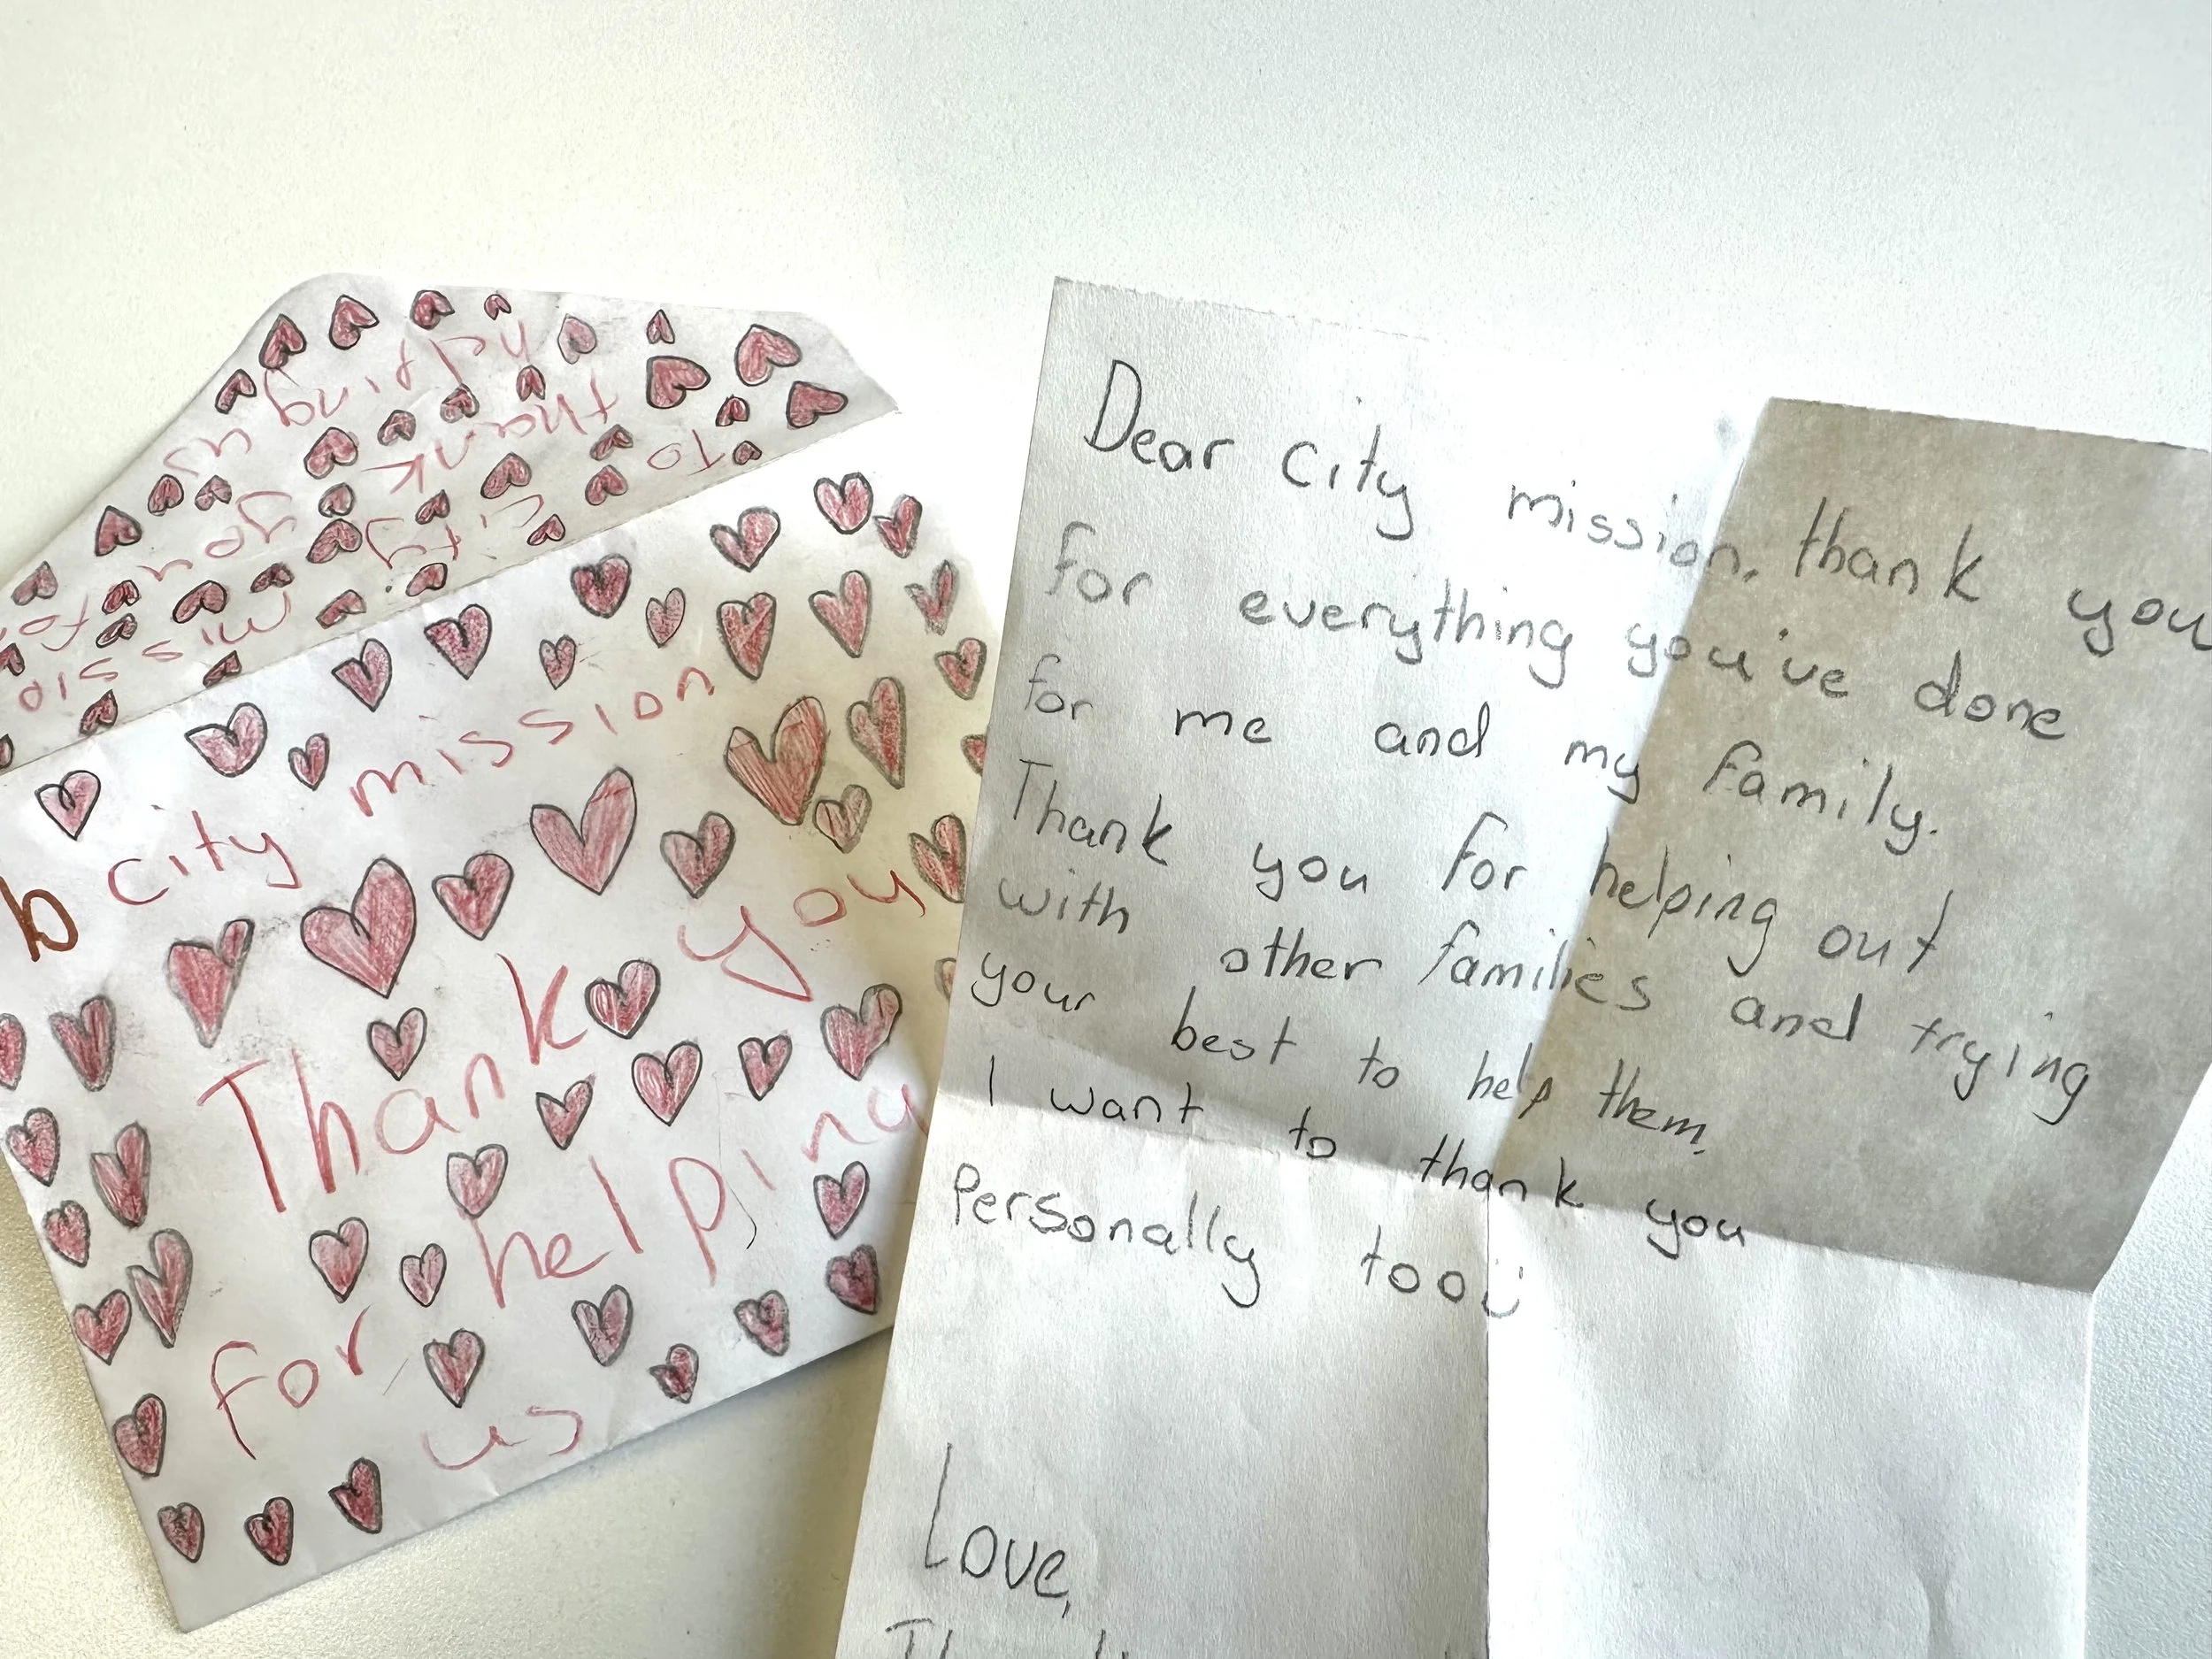 helping us
To
thank you
city
mission for
b city mission
Thank you
helping
for
us
Dear city mission, thank you
for everything you've done
for me and my family.
Thank you for helping out
with other families and trying
your best to help them.
I want to thank you
Personally too
Love,